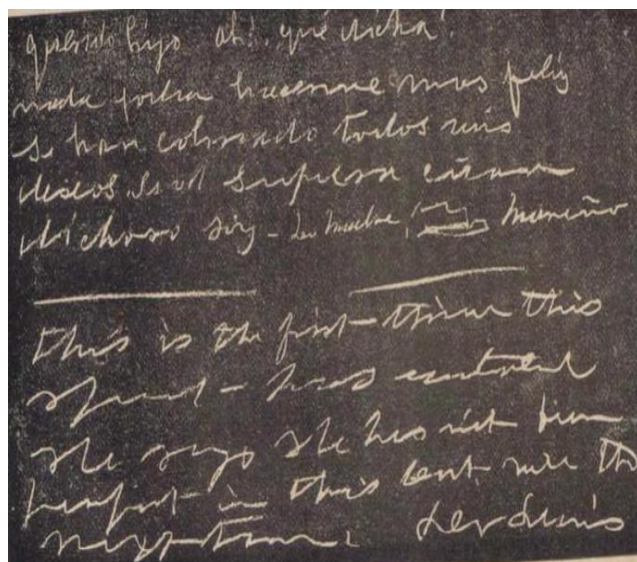 querido hijo ah! que dicha!
nada podra hacerme mas feliz
se han colmado todos mis
deseos. Si vd supiera cuan
dichoso soy - Mariño
this is the first time this
spirit - has control
she says she has not been
perfect in this but will the
next time